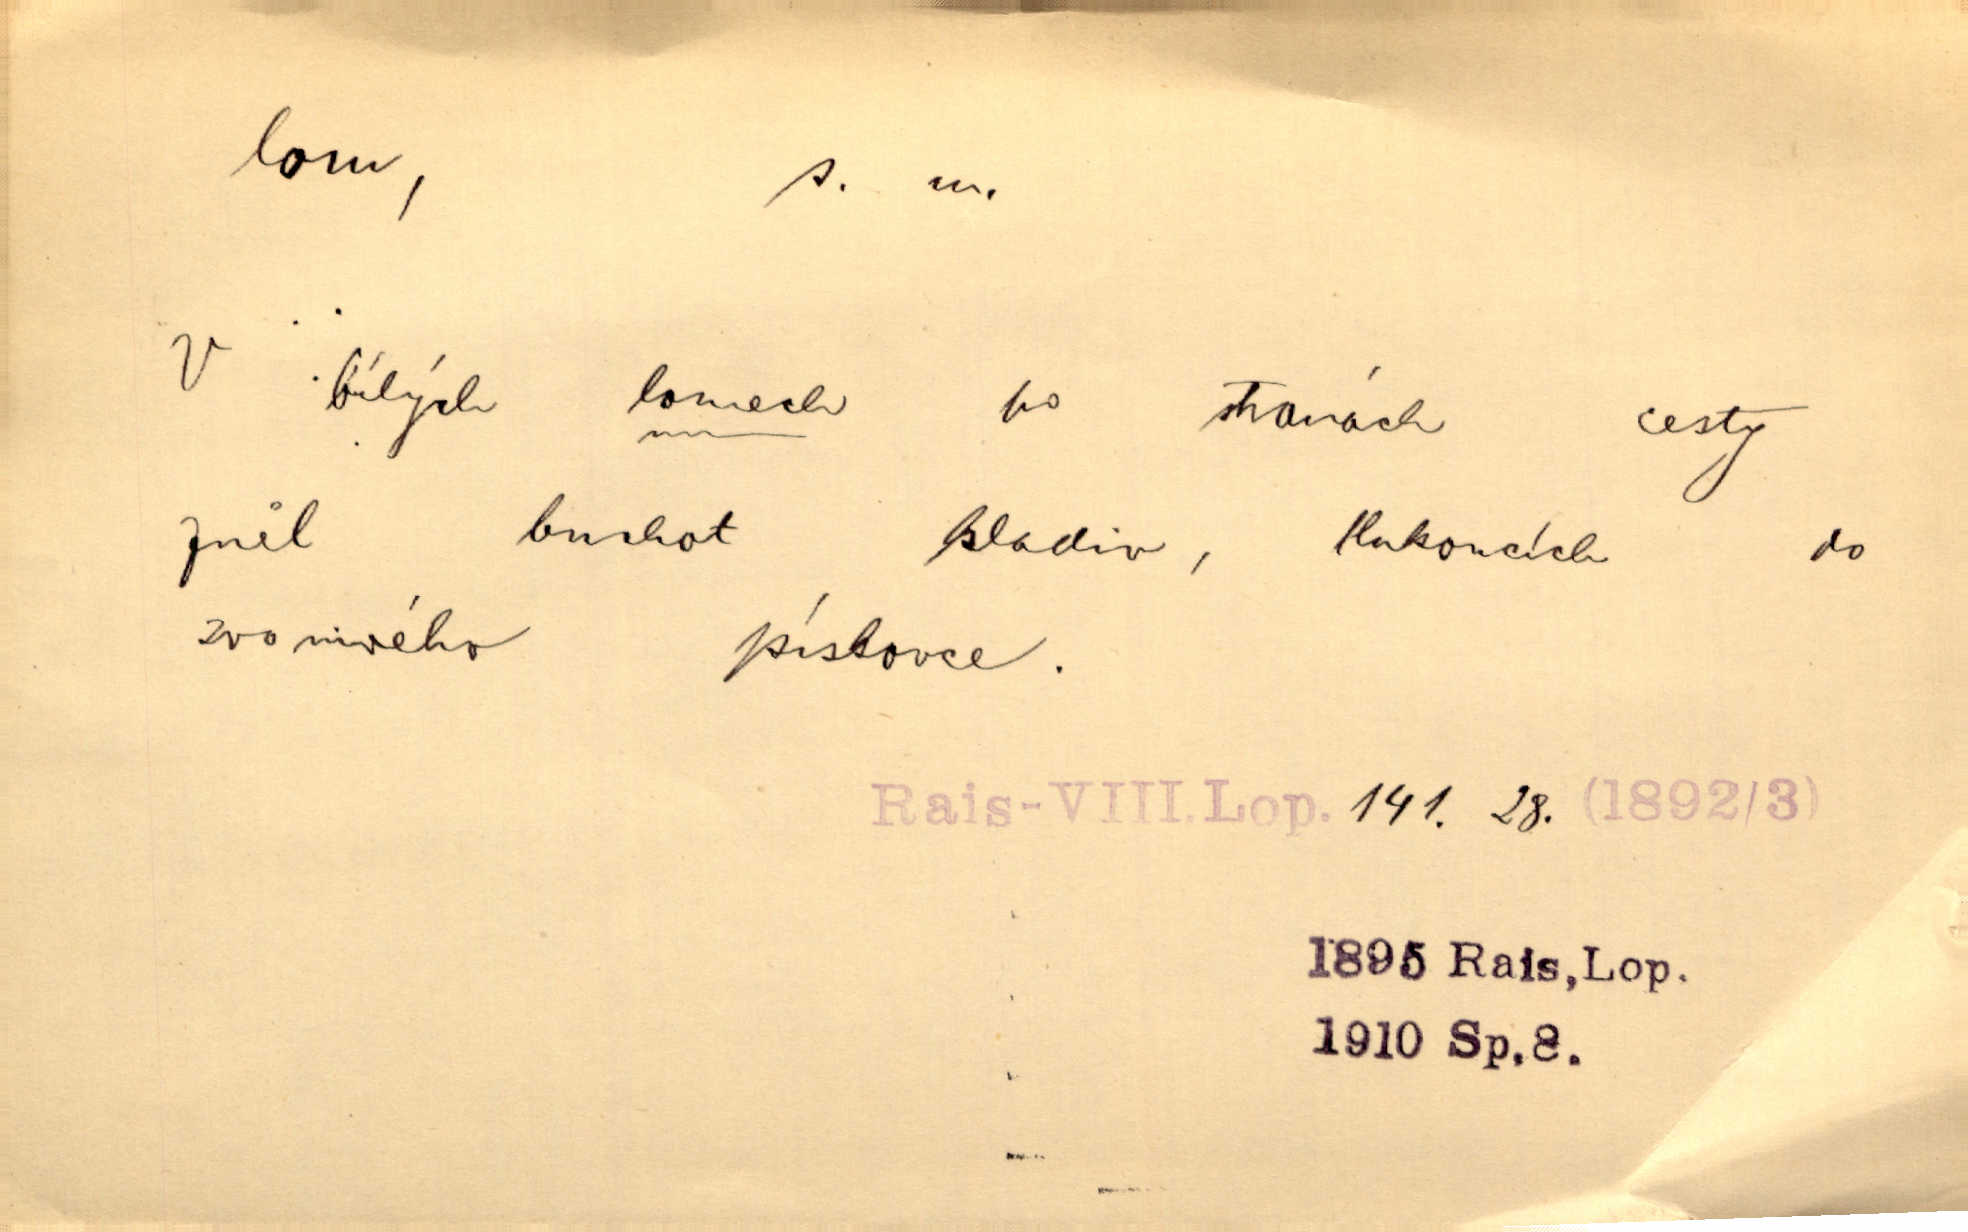 lom, s. m.
V bílých lomech po stranách cesty
zněl buchot kladiv, tlukoucích do
zvonivého pískovce.
Rais-VIII.Lop. 141. 28. (1892/3)
1895 Rais,Lop.
1910 Sp.8.